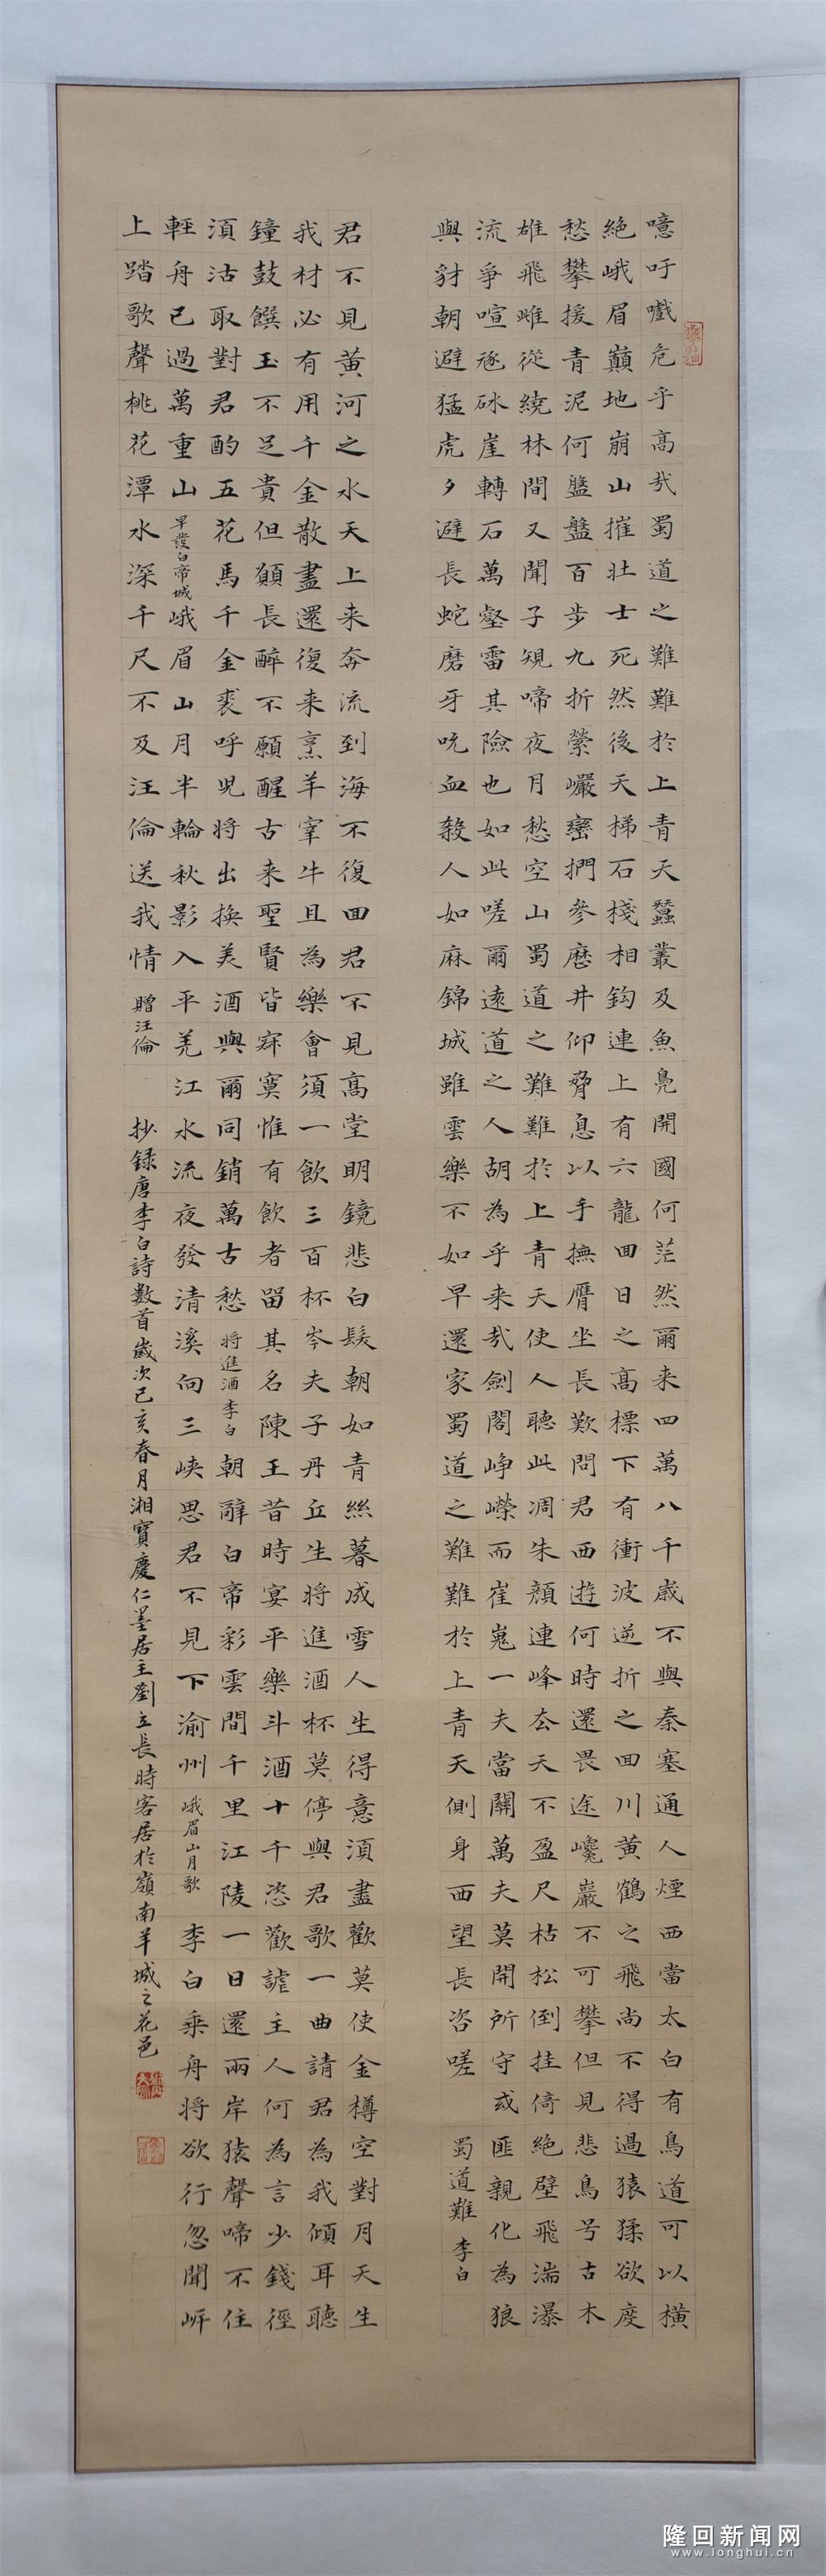 噫吁嚱危乎高哉蜀道之難難於上青天蠶叢及魚鳧開國何茫然爾来四萬八千歲不與秦塞通人煙西當太白有鳥道可以橫
絶峨眉巔地崩山摧壯士死然後天梯石棧相鈎連上有六龍回日之高標下有衝波逆折之回川黄鶴之飛尚不得過猿猱欲度
愁攀援青泥何盤盤百步九折縈巖巒捫參歷井仰脅息以手撫膺坐長歎問君西遊何時還畏途巉巖不可攀但見悲鳥号古木
雄飛雌從繞林間又聞子規啼夜月愁空山蜀道之難難於上青天使人聽此凋朱顏連峰去天不盈尺枯松倒挂倚絶壁飛湍瀑
流爭喧豗砯崖轉石萬壑雷其險也如此嗟爾遠道之人胡為乎来哉劍閣崢嶸而崔嵬一夫當關萬夫莫開所守或匪親化為狼
與豺朝避猛虎夕避長蛇磨牙吮血殺人如麻錦城雖雲樂不如早還家蜀道之難難於上青天側身西望長咨嗟 蜀道難 李白
君不見黄河之水天上来奔流到海不復回君不見高堂明鏡悲白髮朝如青絲暮成雪人生得意須盡歡莫使金樽空對月天生
我材必有用千金散盡還復来烹羊宰牛且為樂會須一飲三百杯岑夫子丹丘生将進酒杯莫停與君歌一曲請君為我傾耳聽
鐘鼓饌玉不足貴但願長醉不願醒古来聖賢皆寂寞惟有飲者留其名陳王昔時宴平樂斗酒十千恣歡謔主人何為言少錢徑
須沽取對君酌五花馬千金裘呼兒将出換美酒與爾同銷萬古愁 将進酒 李白 朝辭白帝彩雲間千里江陵一日還兩岸猿聲啼不住
輕舟已過萬重山 早發白帝城 峨眉山月半輪秋影入平羌江水流夜發清溪向三峡思君不見下渝州 峨眉山月歌 李白乘舟将欲行忽聞岍
上踏歌聲桃花潭水深千尺不及汪倫送我情 贈汪倫 抄録唐李白詩數首歲次己亥春月湘寶慶仁墨居主劉立長時客居於嶺南羊城之花邑
隆回新闻网
www.longhui.cn